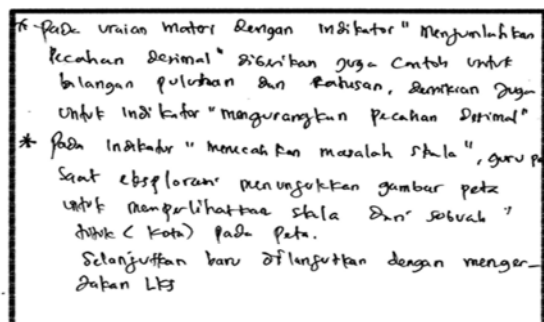 * Pada uraian materi dengan indikator "Menjumlahkan
Pecahan desimal" diberikan juga contoh untuk
bilangan puluhan dan ratusan, demikian juga
untuk indikator "mengurangkan pecahan desimal"
* Pada indikator "memecahkan masalah skala", guru pa
saat eksplorasi menunjukkan gambar peta
untuk memperlihatkan skala dari sebuah
titik (kota) pada peta.
Selanjutkan baru dilanjutkan dengan menger-
jakan LKS